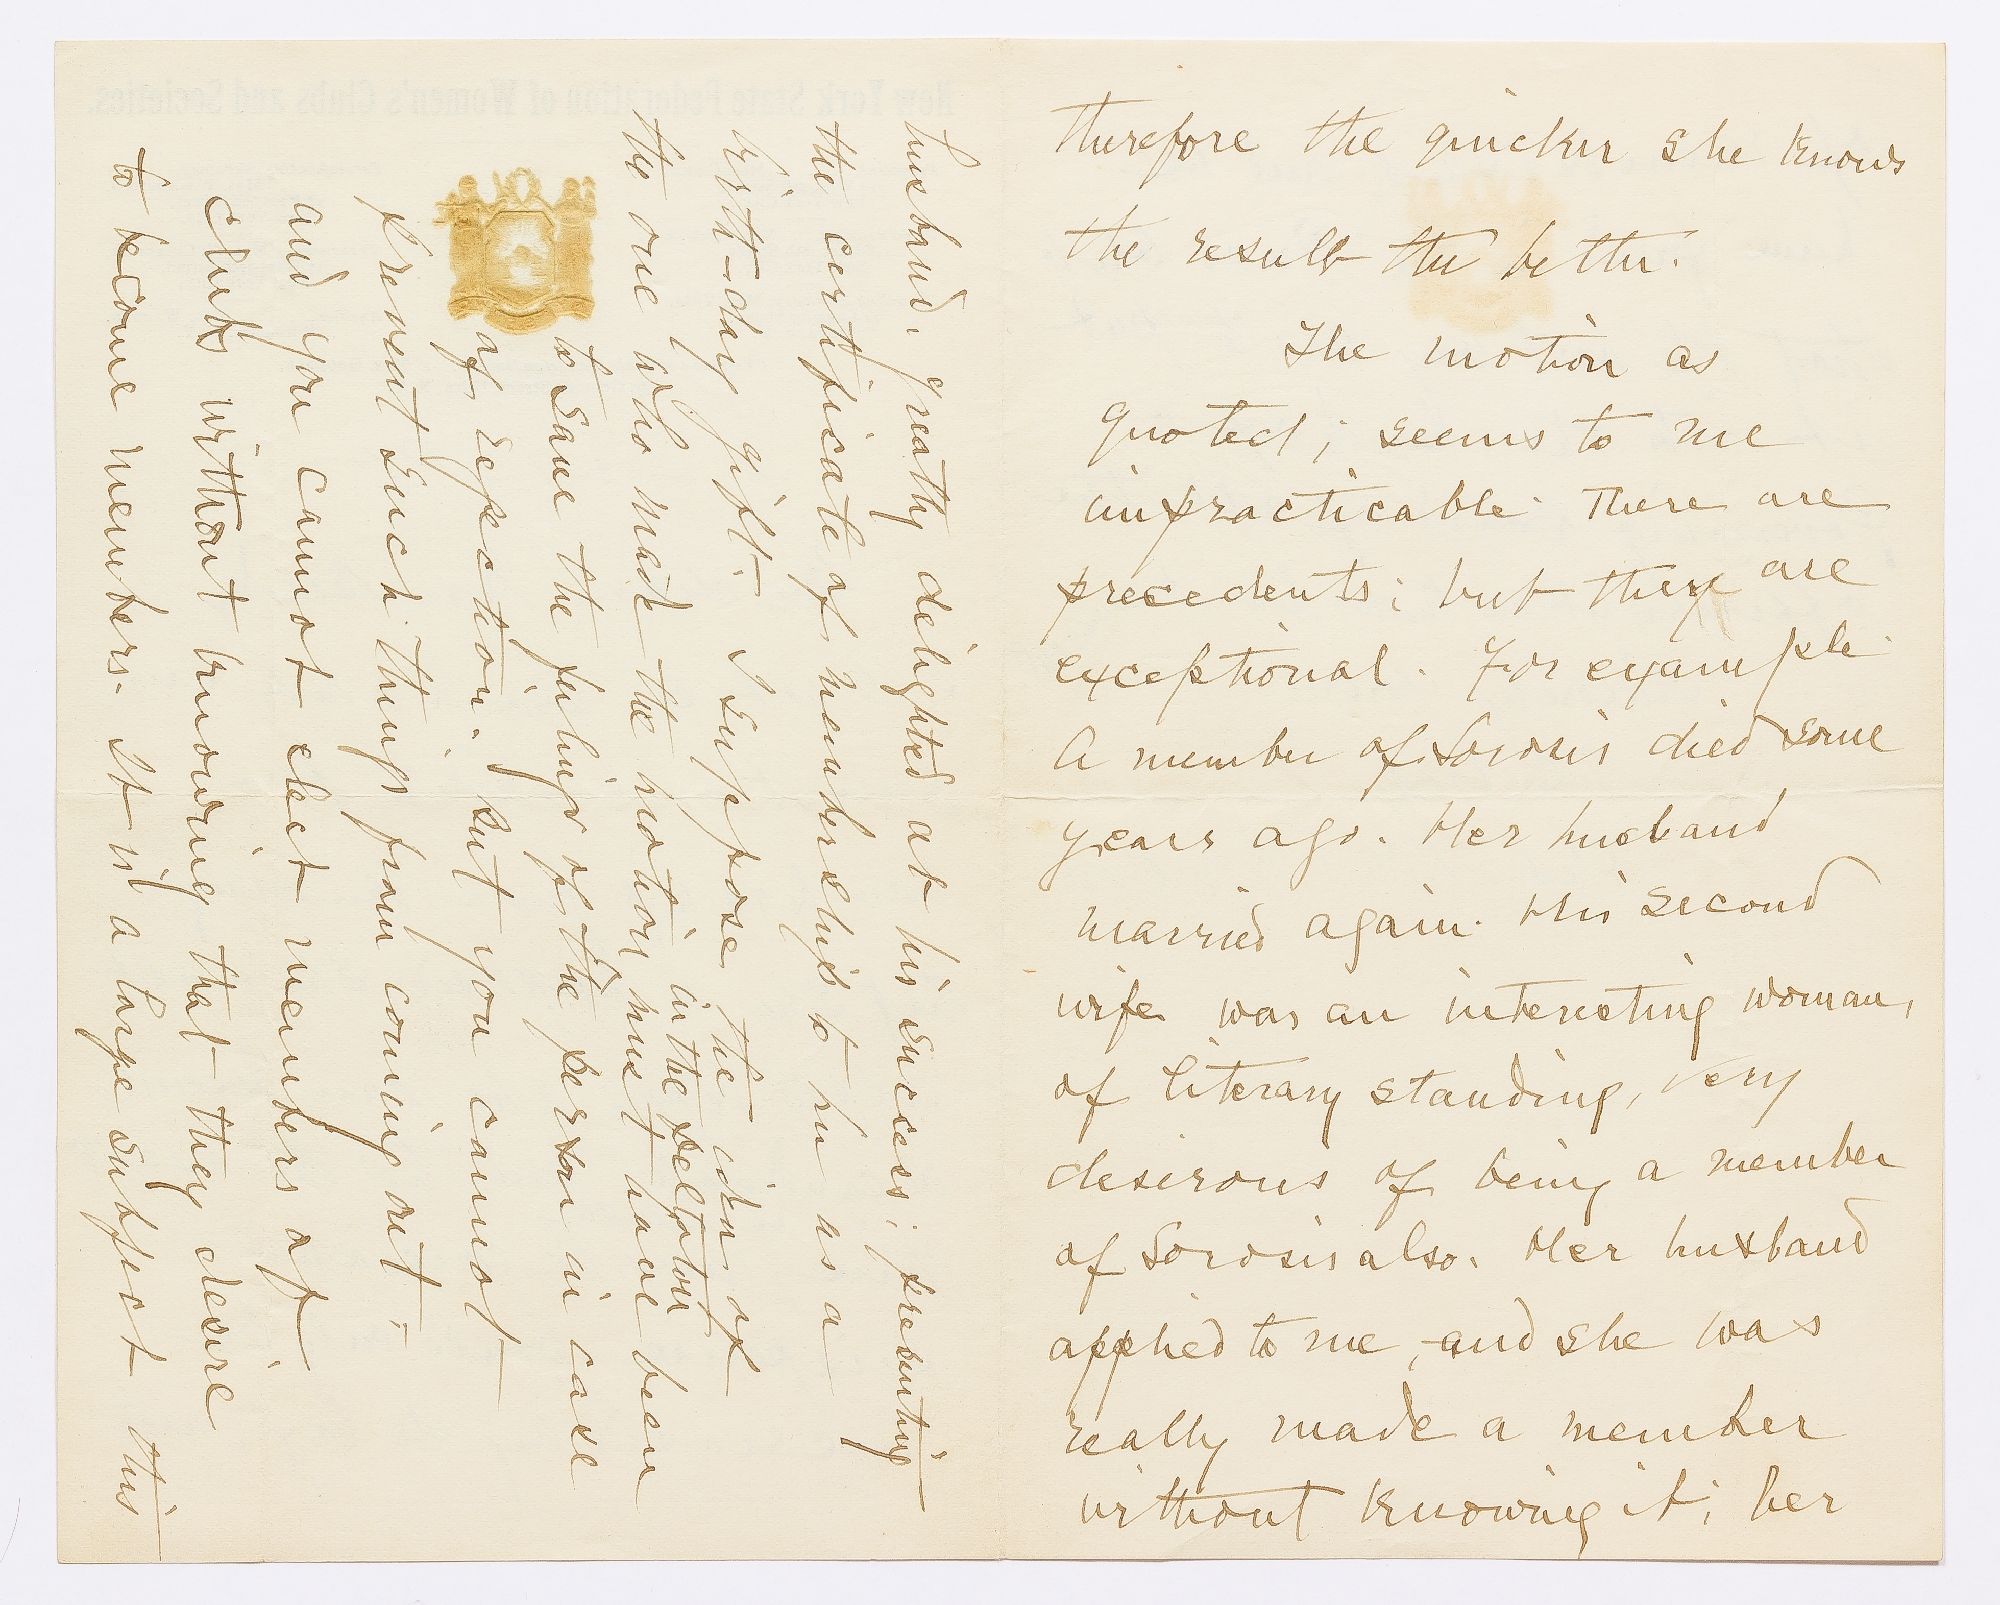 therefore the quicker she knows
the result the better.
The motion as
quoted; seems to me
impracticable. There are
precedents; but they are
exceptional. For example
A member of Sorosis died some
years ago. Her husband
married again. His second
wife was an interesting woman,
of literary standing, very
desirous of being a member
of Sorosis also. Her husband
applied to me, and she was
really made a member
without knowing it; her
husband, greatly delighted at his success; presenting
the certificate of membership to her as a
birth-day gift. I suppose the idea of
the one who made the motion in the
must have been
to save the feelings of the person in case
of rejection. but you cannot
prevent such things from coming out =
and you cannot elect members of
clubs without knowing that they desire
to become members. It is a large subject this
New York State Federation of Women's Clubs and Societies.